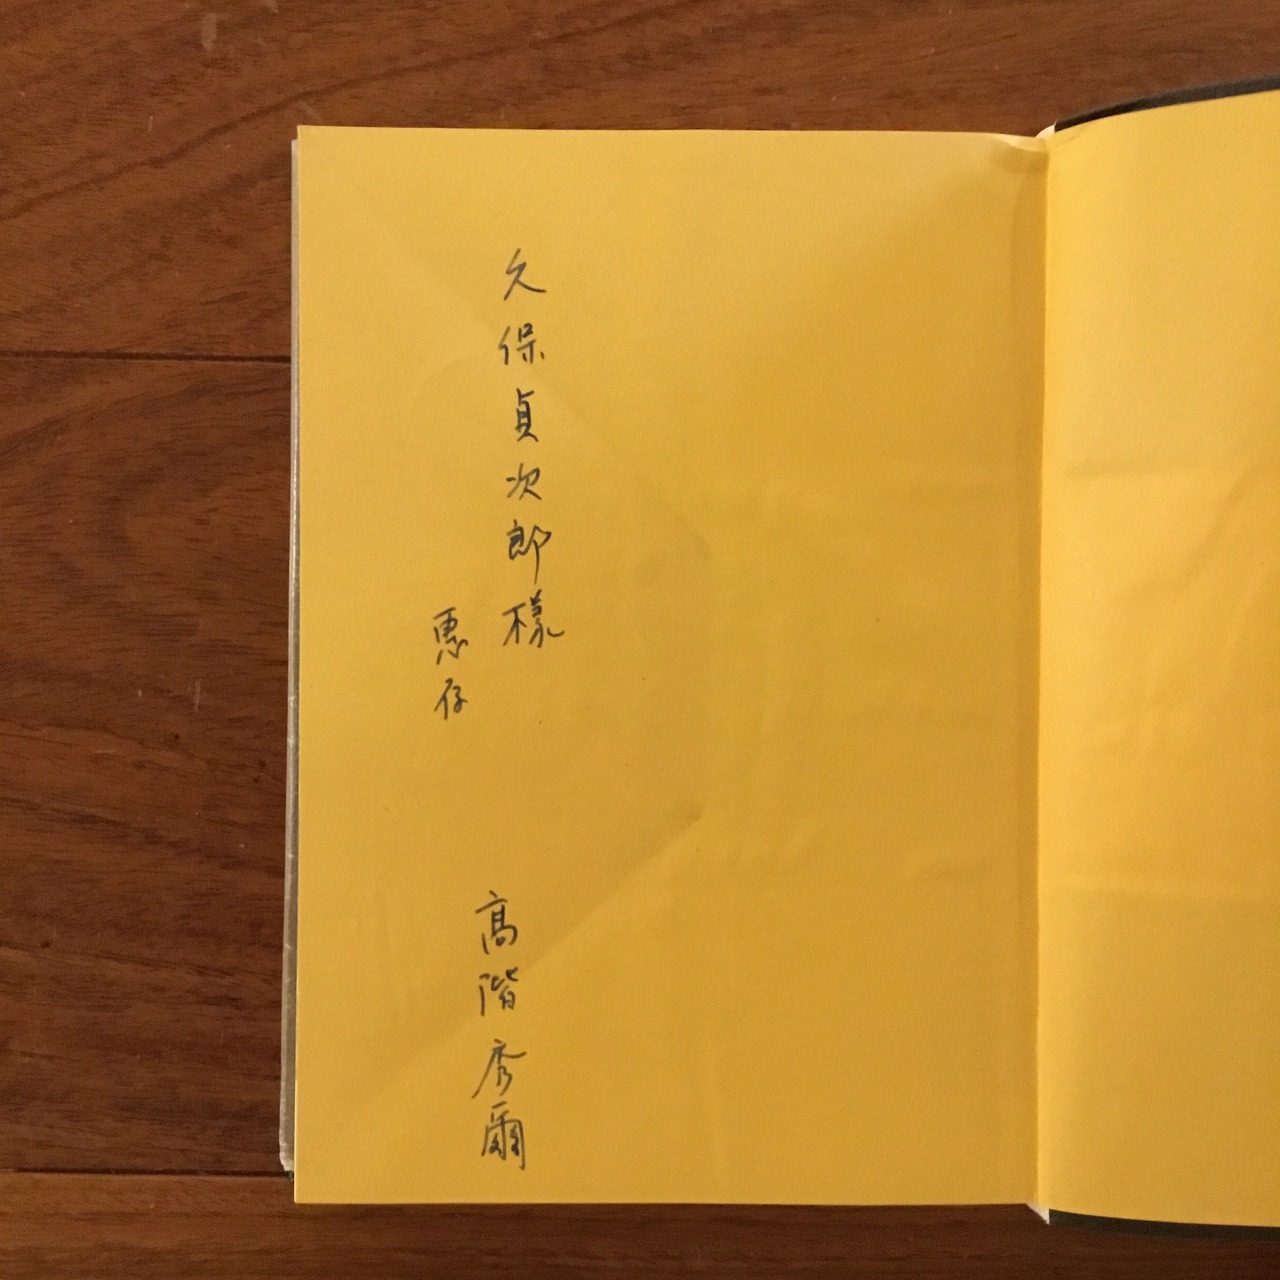 久保貞次郎様
恵存
髙階秀爾